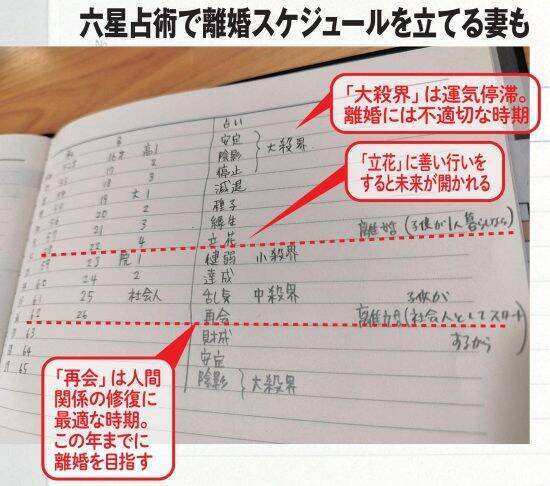 六星占術で離婚スケジュールを立てる妻も
「大殺界」は運気停滞。
離婚には不適切な時期
「立花」に善い行いを
すると未来が開かれる
占い
16才 高1 安定
17 2 陰影 大殺界
18 3 停止
減退
19 大1 種子
20 2 緑生
21 3 立花 離婚(子供が1人暮らしなら)
22 4 健弱 小殺界
59 23 院1 達成
60 24 2 乱気 中殺界
61 25 社会人 再会 子供が
離婚(社会人としてスタート
するから)
62 26 財成
63 安定
64 陰影 大殺界
65
「再会」は人間
関係の修復に
最適な時期。
この年までに
離婚を目指す